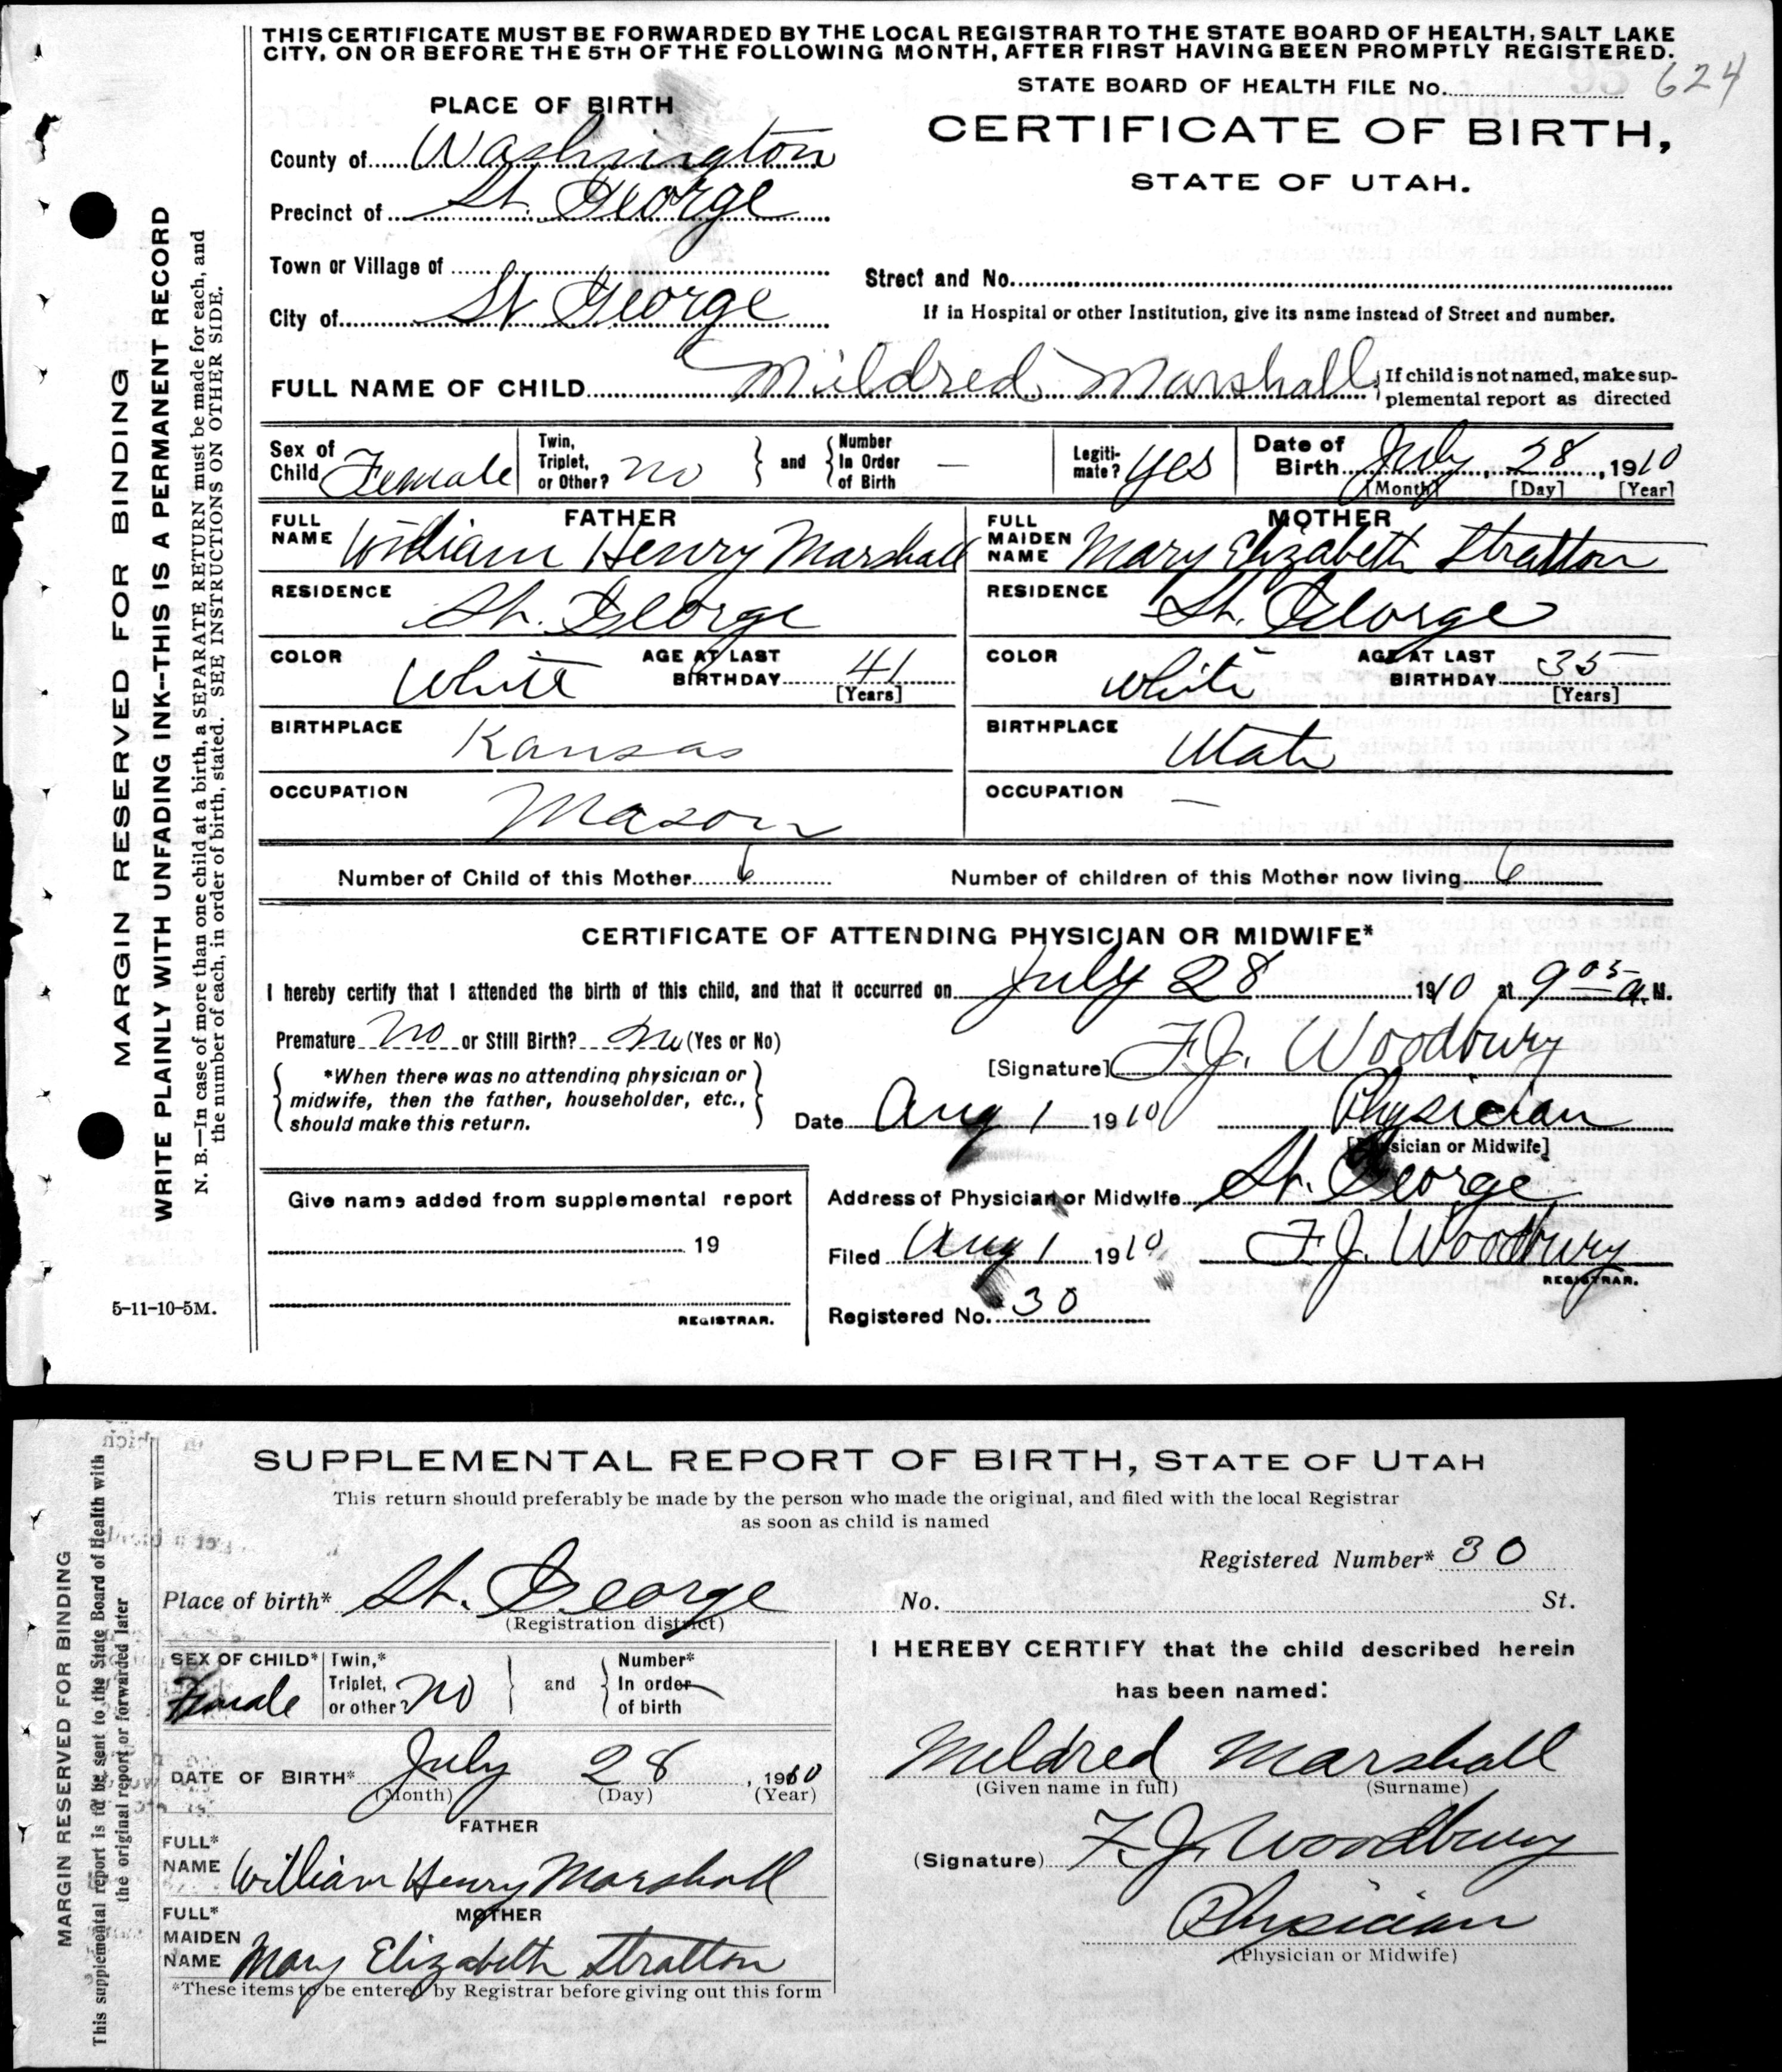 THIS CERTIFICATE MUST BE FORWARDED BY THE LOCAL REGISTRAR TO THE STATE BOARD OF HEALTH, SALT LAKE
CITY, ON OR BEFORE THE 5TH OF THE FOLLOWING MONTH, AFTER FIRST HAVING BEEN PROMPTLY REGISTERED.
STATE BOARD OF HEALTH FILE No. 624
PLACE OF BIRTH
CERTIFICATE OF BIRTH,
STATE OF UTAH.
County of Washington
Precinct of St. George
Town or Village of
Street and No.
City of St George
If in Hospital or other Institution, give its name instead of Street and number.
FULL NAME OF CHILD Mildred Marshall If child is not named, make sup-
plemental report as directed
Sex of Child Female Twin, Triplet, or Other? no and Number In Order of Birth — Legiti-mate? yes Date of Birth July, 28, 1910
[Month] [Day] [Year]
FATHER MOTHER
FULL NAME William Henry Marshall FULL MAIDEN NAME Mary Elizabeth Stratton
RESIDENCE St. George RESIDENCE St. George
COLOR White AGE AT LAST BIRTHDAY 41 [Years] COLOR White AGE AT LAST BIRTHDAY 35 [Years]
BIRTHPLACE Kansas BIRTHPLACE Utah
OCCUPATION Mason OCCUPATION —
Number of Child of this Mother 6 Number of children of this Mother now living 6
CERTIFICATE OF ATTENDING PHYSICIAN OR MIDWIFE*
I hereby certify that I attended the birth of this child, and that it occurred on July 28 1910 at 9 05 a. M.
Premature no or Still Birth? no (Yes or No)
[Signature] F.J. Woodbury
*When there was no attending physician or
midwife, then the father, householder, etc.,
should make this return.
Date Aug 1 1910 Physician
[Physician or Midwife]
Give name added from supplemental report
19
REGISTRAR.
Address of Physician or Midwife St. George
Filed Aug 1 1910 F.J. Woodbury
REGISTRAR.
Registered No. 30
5-11-10-5M.
MARGIN RESERVED FOR BINDING
WRITE PLAINLY WITH UNFADING INK--THIS IS A PERMANENT RECORD
N. B.—In case of more than one child at a birth, a SEPARATE RETURN must be made for each, and
the number of each, in order of birth, stated. SEE INSTRUCTIONS ON OTHER SIDE.
SUPPLEMENTAL REPORT OF BIRTH, STATE OF UTAH
This return should preferably be made by the person who made the original, and filed with the local Registrar
as soon as child is named
Registered Number* 30
Place of birth* St. George No. St.
(Registration district)
SEX OF CHILD* Female Twin,* Triplet, or other? no and Number* In order of birth —
DATE OF BIRTH* July 28, 1910
(Month) (Day) (Year)
FATHER
FULL* NAME William Henry Marshall
MOTHER
FULL* MAIDEN NAME Mary Elizabeth Stratton
*These items to be entered by Registrar before giving out this form
I HEREBY CERTIFY that the child described herein
has been named:
Mildred Marshall
(Given name in full) (Surname)
(Signature) F.J. Woodbury
Physician
(Physician or Midwife)
MARGIN RESERVED FOR BINDING
This supplemental report is to be sent to the State Board of Health with
the original report or forwarded later